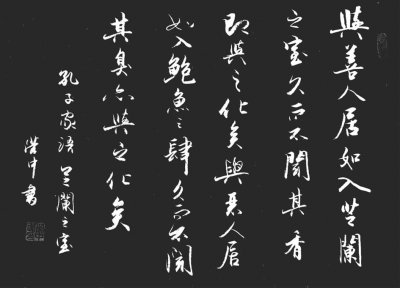 與善人居如入芝蘭
之室久而不聞其香
即與之化矣與惡人居
如入鮑魚之肆久而不聞
其臭亦與之化矣
孔子家語芝蘭之室
浩中書